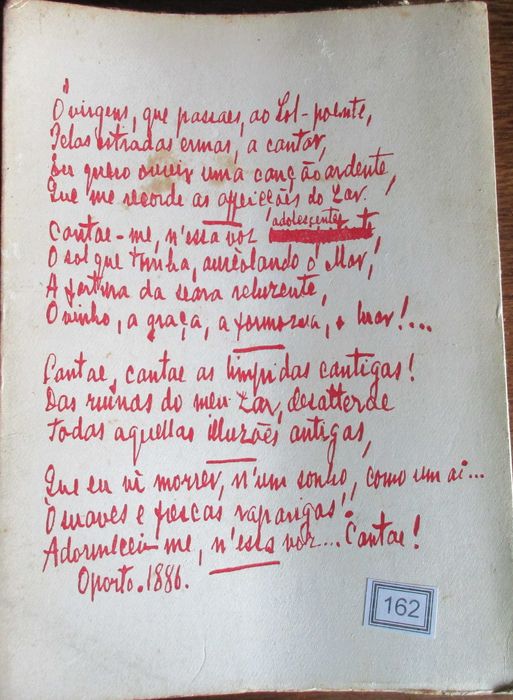 Ó virgens, que passaes, ao Sol-poente,
Pelas estradas ermas, a cantar,
Eu quero ouvir uma canção ardente,
Que me recorde as affeições do Lar!
Cantae-me, n'essa voz adolescente,
O sol que tinha, aureolando o Mar,
A fartura da seara reluzente,
O vinho, a graça, a formozura, o luar!...
Cantae, cantae as limpidas cantigas!
Das ruinas do meu Lar, desatterae
Todas aquellas illuzões antigas,
Que eu vi morrer, n'um sonho, como um ai...
Ó suaves e frescas raparigas!
Adormecei-me, n'essa voz... Cantae!
Oporto. 1886.
162